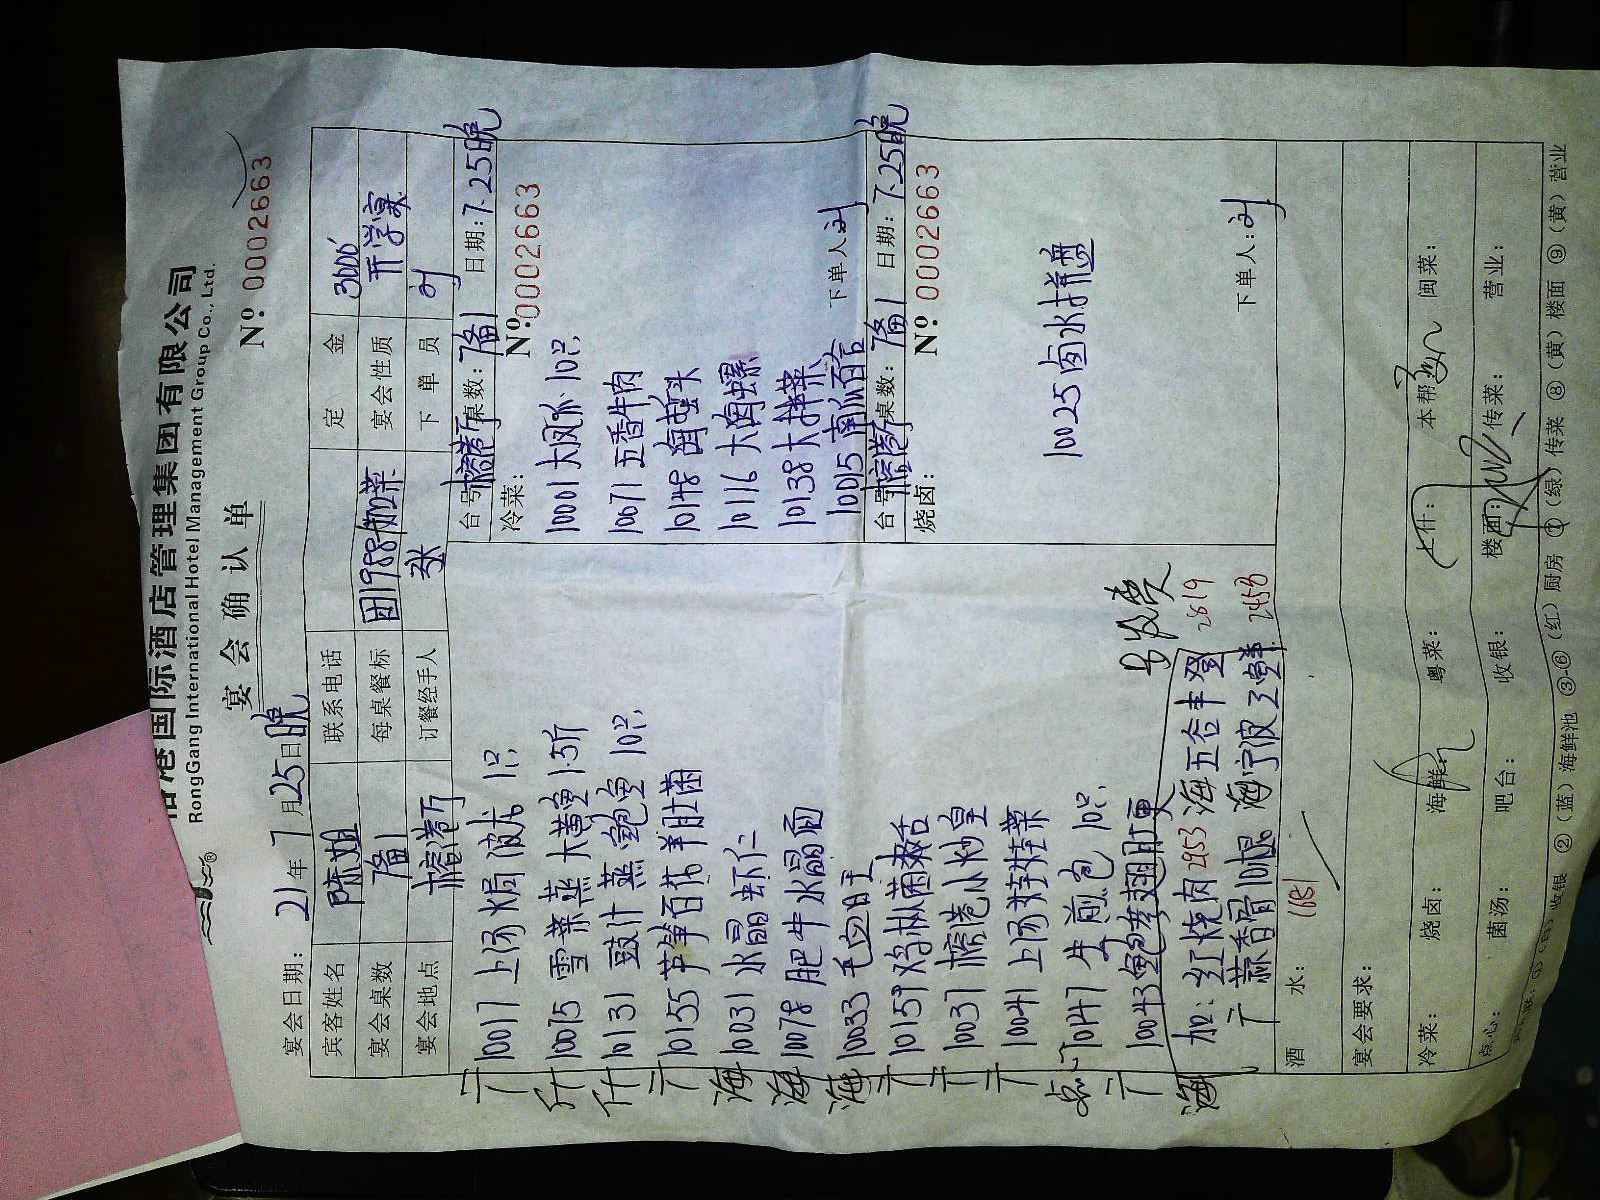 榕港国际酒店管理集团有限公司
RongGang International Hotel Management Group Co., Ltd.
宴会确认单
Nº 0002663
宴会日期: 21年7月25日晚
宾客姓名 陈姐 联系电话 定金 3000
宴会桌数 7备1 每桌餐标 团1988加菜 宴会性质 升学宴
宴会地点 榕港厅 订餐经手人 张 下单员 刘
广 10017 上汤焗波龙 1只
什 10075 雪菜蒸大黄鱼 1.5斤
什 10131 豉汁蒸鲍鱼 10只
广 10155 芦笋百花羊肚菌
海 10031 水晶虾仁
海 10078 肥牛水晶面
海 10033 毛血旺
广 10159 鸡枞菌爽舌
广 10037 榕港小炒皇
广 10041 上汤娃娃菜
点心 10147 生煎包 10只
广 10043 鲍参翅肚羹
另发费
海 加: 红烧肉 2953 海 五谷丰登 2819
广 蒜香骨10根 海 宁波三鲜 2458
台号: 榕港厅 桌数: 7备1 日期: 7.25晚
冷菜:
Nº 0002663
10001 大凤爪 10只
10071 五香牛肉
10148 卤鸭头
10116 大卤螺
10138 大拌菜
10015 南瓜百合
下单人: 刘
台号: 榕港厅 桌数: 7备1 日期: 7.25晚
烧卤:
Nº 0002663
10025 卤水拼盘
下单人: 刘
酒水: 1181
宴会要求:
冷菜: 烧卤: 海鲜: 粤菜: 上什: 本帮: 闽菜:
点心: 菌汤: 吧台: 收银: 楼面: 传菜: 营业:
收银 ②(蓝)海鲜池 ③-⑥(红)厨房 ⑦(绿)传菜 ⑧(黄)楼面 ⑨(黄)营业